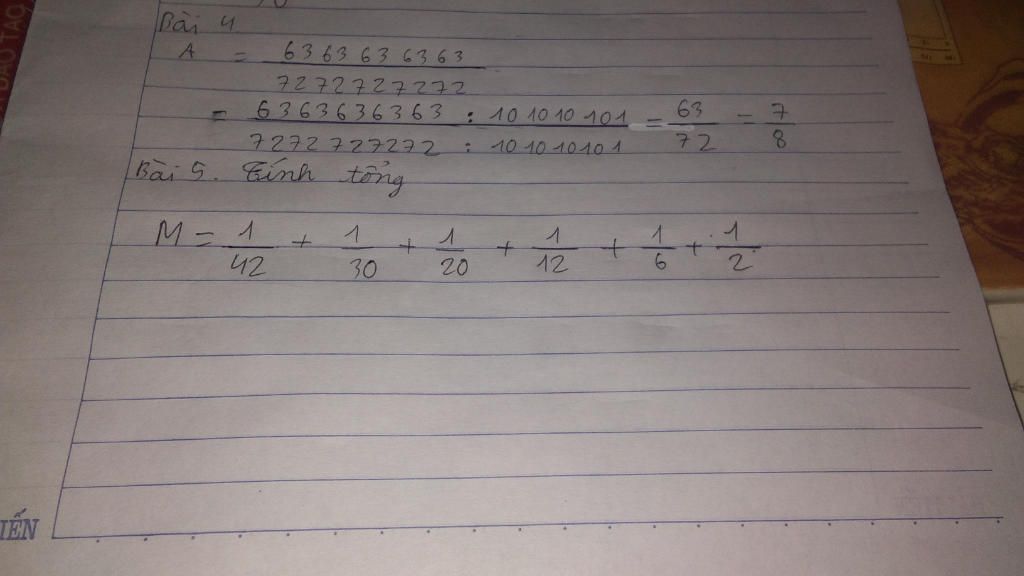 Bài 4
A = 6363636363 / 7272727272
= 6363636363 : 101010101 / 7272727272 : 101010101 = 63 / 72 = 7 / 8
Bài 5. Tính tổng
M = 1/42 + 1/30 + 1/20 + 1/12 + 1/6 + 1/2
IẾN